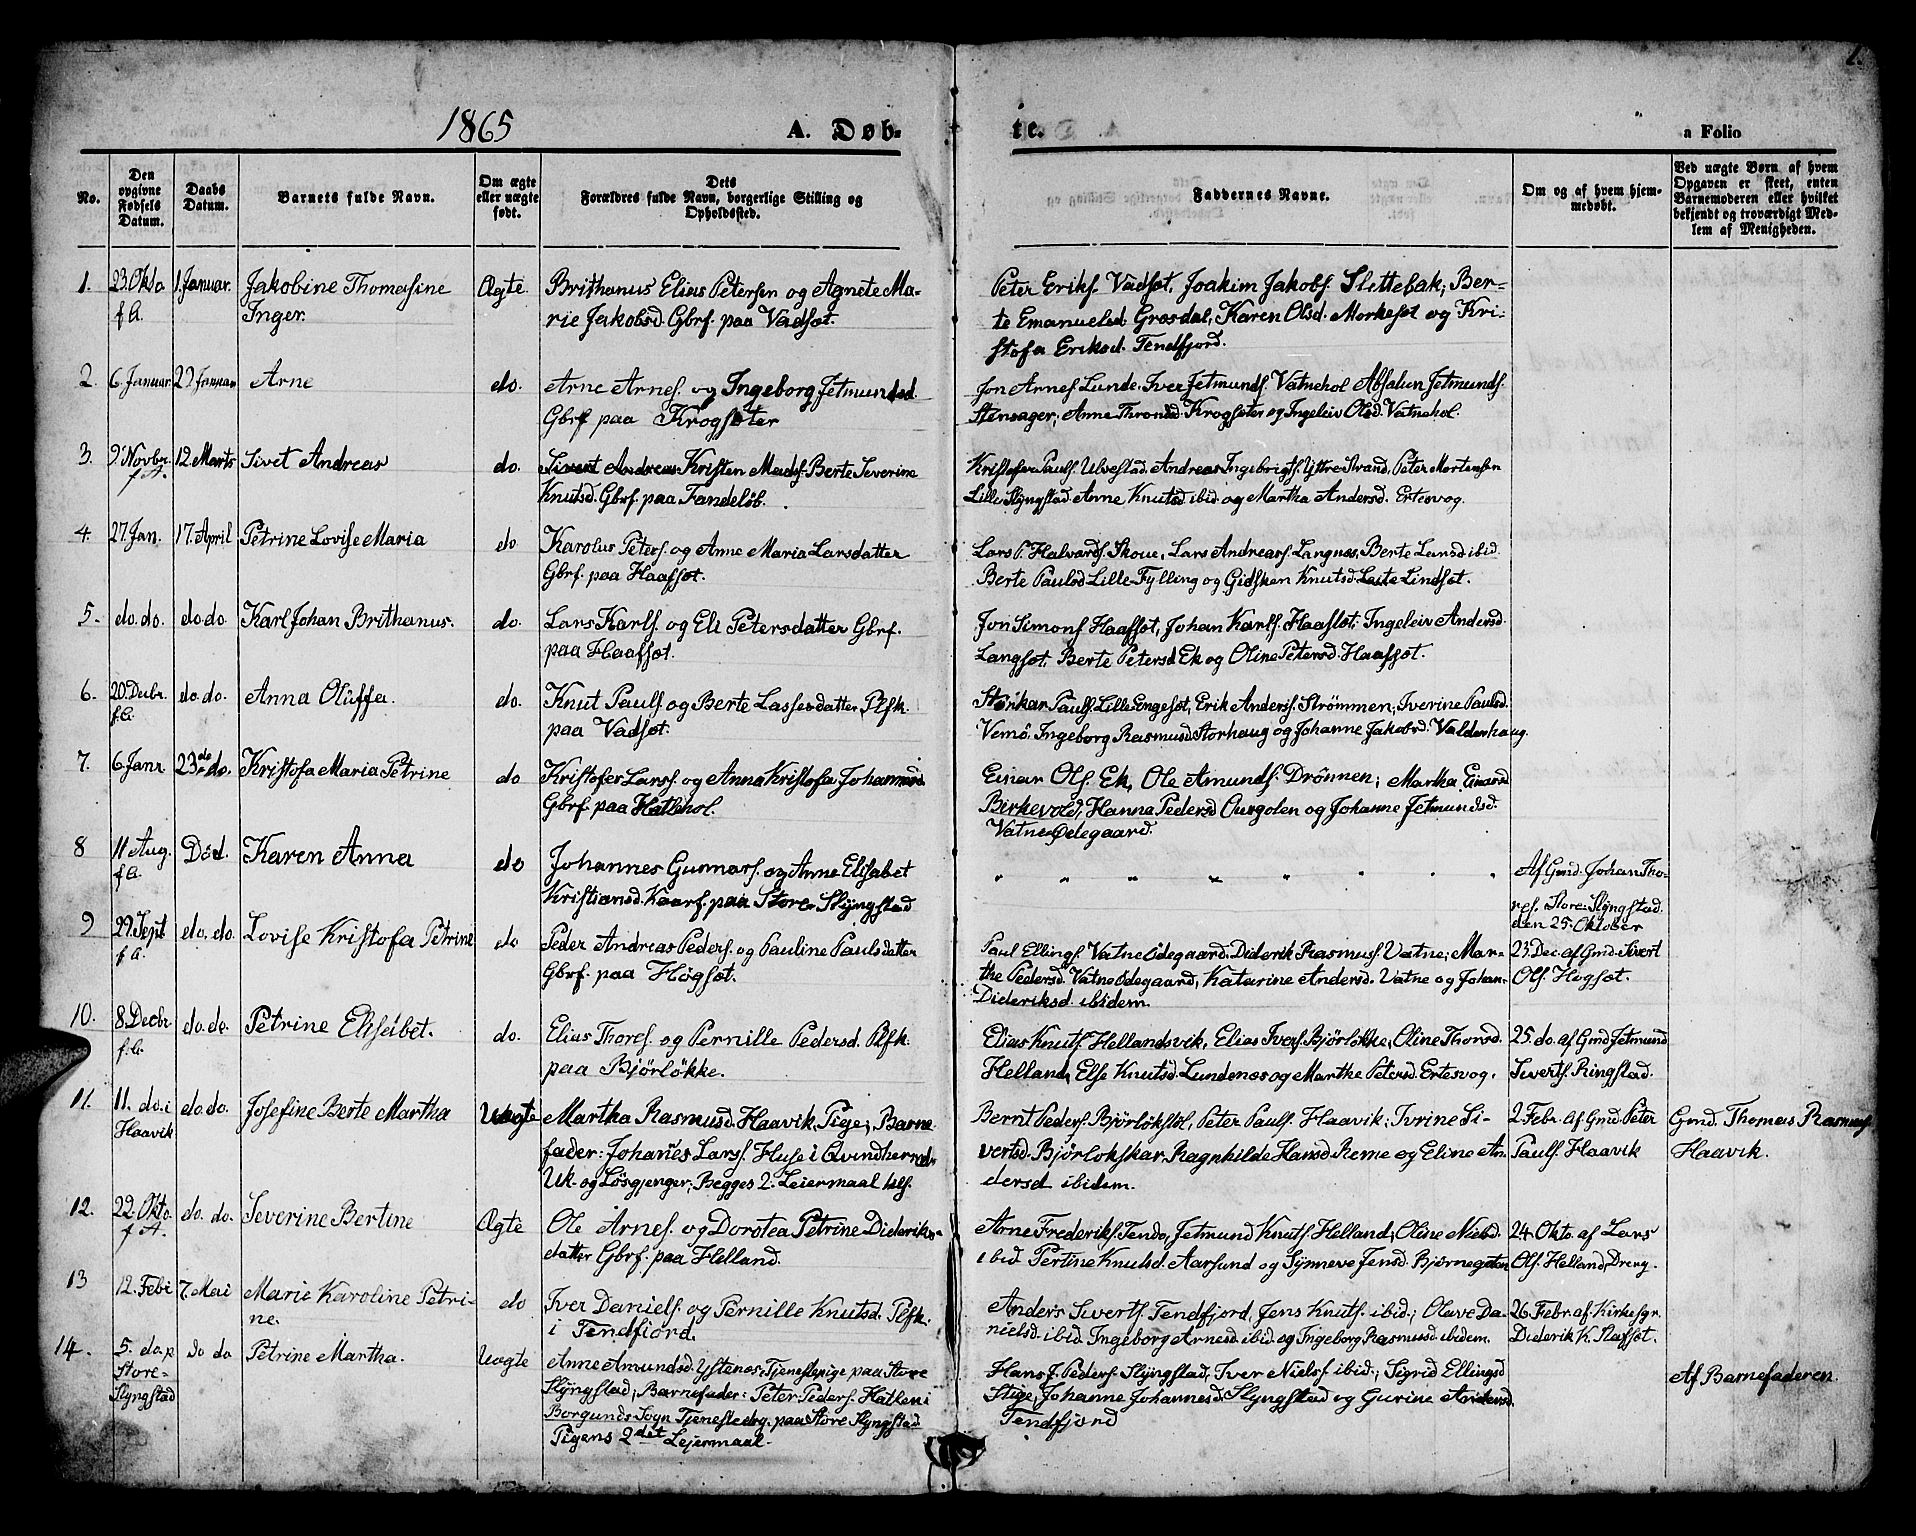 1865
A. Døb-
te.
a Folio
No.
Den
opgivne
Fødsels
Datum.
Daabs
Datum.
Barnets fulde Navn.
Om ægte
eller uægte
født.
Dets
Forældres fulde Navn, borgerlige Stilling og
Opholdssted.
Faddernes Navne.
Om og af hvem hjem-
medøbt.
Ved uægte Børn af hvem
Opgaven er skeet, enten
Barnemoderen eller hvilket
bekjendt og troværdigt Med-
lem af Menigheden.
1. 23. Okto 1. Januar. Jakobine Thomasine Ægte Brithanus Elias Petersen og Agnete Ma- Peter Eriks. Vadset, Joakim Jakobs. Slettebak, Ber-
f.A. Inger. rie Jakobsd. Gbrf. paa Vadset. te Emanuelsd. Grosdal, Karen Olsd. Morkeset og Kri-
stofa Eriksd. Tendfjord.
2. 6. Januar. 29 Januar Arne do. Arne Arnes. og Ingeborg Jetmundsd. Jon Arnes. Lunde, Iver Jetmunds. Vatnehol Absalun Jetmunds.
Gbrf paa Krogseter Stensager, Anne Thronsd. Krogseter og Ingeleiv Olsd. Vatnehol.
3. 9. Novbr. 12 Marts Sivet Andreas do. Sivert Andreas Kristen Mads. Berte Severine Kristofer Pauls. Ulvestad, Andreas Ingebrigts. Yttre Strand, Peter Mortensen
f.A. Knutsd. Gbrf. paa Fandeløb. Lille Slyngstad, Anne Knutsd ibid og Martha Andersd. Ertesvog
4. 27. Jan. 17. April Petrine Lovise Maria do Karolus Peters. og Anne Maria Larsdatter Lars P. Halvards. Skoue, Lars Andreass. Langnes, Berte Larsd ibid.
Gbrf. paa Haafset. Berte Paulsd Lille-Fylling og Gidsken Knutsd. Leite Lindset.
5. do. do. do do. Karl Johan Brithanus. do. Lars Karls. og Eli Petersdatter Gbrf. Jon Simons Haafset, Johan Karls. Haafset, Ingeleiv Andersd
paa Haafset. Langset, Berte Petersd Ek og Oline Petersd. Haafset.
6. 20. Decbr. do. do. Anna Oluffa. do. Knut Pauls. og Berte Lassesdatter, Plfk. Storkar Pauls. Lille Engeset, Erik Anderss. Strömmen; Iverine Paulsd.
f.A. paa Vadset. Vemö, Ingeborg Rasmusd. Storhaug og Johanne Jakobsd. Valderhaug.
7. 6. Janr 23de do. Kristofa Maria Petrine do Kristofer Larss. og Anna Kristofa Johannesd Einar Ols. Ek, Ole Amunds. Drönnen; Martha Einarsd
Gbrf. paa Hatlehol. Birkevold, Hanna Pedersd Aursolen og Johanne Jetmundsd.
Vatne Ødegaard.
8 11 Aug. Död. Karen Anna do Johannes Gunnars. og Anne Elisabet " " " " " " " " Af Gmd. Johan Tho-
f.A. Kristiansd. Kaarf. paa Store-Slyngstad res. Store-Slyngstad.
den 25. Oktober
9 29. Sept do. do. Lovise Kristofa Petrine do Peder Andreas Peders. og Pauline Paulsdatter Paul Ellings. Vatne Ödegaard, Diderik Rasmus. Vatne; Mar- 23. Dec. af Gmd. Sivert
f.A. Gbrf. paa Högset. the Pedersd. Vatne Ödegaard, Katarine Andersd. Vatne og Johan- Ols. Hogset.
Dideriksd. ibidem.
10. 8. Decbr do. do. Petrine Elisebet. do. Elias Thores. og Pernille Pedersd. Plfk. Elias Knuts. Hellandsvik, Elias Ivers Björlökke, Oline Thorsd. 25. do. af Gmd Jetmund
f.A. paa Björlökke. Helland, Else Knutsd. Lundenes og Marthe Petersd. Ertesvog. Siverts. Ringstad.
11. 11. do. i do. do. Josefine Berte Martha Uægte Martha Rasmusd. Haavik, Pige; Barne- Bernt Peders. Björlökstöl, Peter Pauls. Haavik; Ivrine Si- 2 Febr. af Gmd Peter Gmd. Thomas Rasmus.
Haavik fader: Johannes Lars. Huse i Qvindherred, vertsd. Björlokskar, Ragnhilde Hansd. Reme og Eline An- Pauls. Haavik Haavik.
Uk. og Lösgjenger; Begges 2. Leiermaal dersd ibidem.
12. 22. Okto. do. do. Severine Bertine Ægte Ole Arnes. og Dorotea Petrine Diderik- Arne Frederiks. Tendo, Jetmund Knuts. Helland; Oline Nielsd. 24. Okto. af Lars
f.A. datter Gbrf. paa Helland. ibid Pertine Knutsd. Aarsund og Synneve Jensd. Björnegaten Ols. Helland, Dreng.
13 12. Febr 7. Mai Marie Karoline Petri- do Iver Daniels. og Pernille Knutsd. Plfk. Anders Siverts. Tendfjord, Jens Knuts. ibid; Olave Da- 26. Febr. af Kirkesgr.
ne. i Tendfiord. nielsd. ibid. Ingeborg Arnesd. ibid og Ingeborg Rasmusd. ibidem Diderik K. Slafset.
14. 5. do. p do do Petrine Martha. Uægte Anne Amundsd. Ystenes, Tjenestepige paa Store Hans J. Peders. Slyngstad, Iver Niels. ibid.; Sigrid Ellingsd Af Barnefaderen.
Store- Slyngstad; Barnefader: Peter Peders. Hatlen i Stige, Johanne Johannesd. Slyngstad og Gurine Andersd.
Slyngstad Borgunds Sogn Tjenestedrg. paa Store Slyngstad Tendfjord
Pigens 2det Lejermaal.